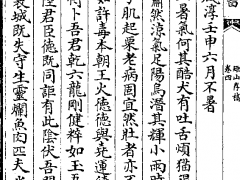 山存稿
卷四
淳壬申六月不暑
暑氣何其酷犬有吐舌煩猫
肅然涼氣足陽烏潛其輝小雨
于肌起粟老病固宜然壯者亦
如許毒本朝王火德德與堯
卜吾君乾六龍剛健粹如玉吾
君臣德既同詎有此陰伏吾
城既失守生靈爛魚肉匹夫